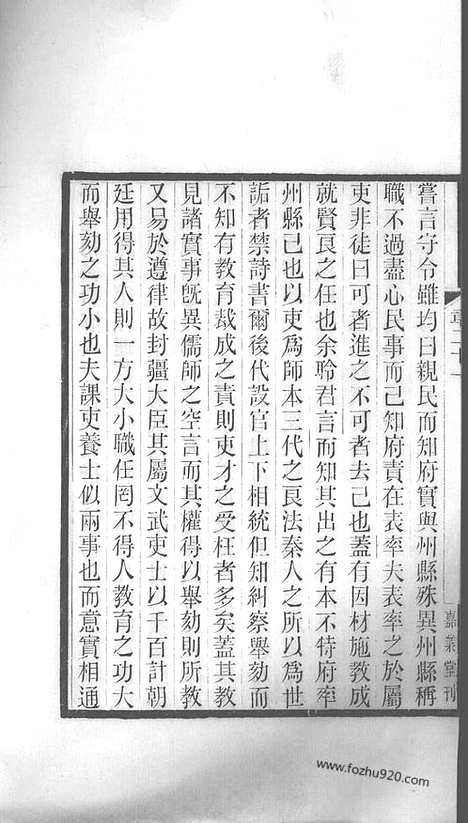 嘗言守令雖均曰親民而知府實與州縣殊異州縣稱
職不過盡心民事而己知府責在表率夫表率之於屬
吏非徒曰可者進之不可者去己也蓋有因材施教成
就賢良之任也余聆君言而知其出之有本不特府率
州縣己也以吏爲師本三代之良法秦人之所以爲世
詬者禁詩書爾後代設官上下相統但知糾察舉劾而
不知有教育裁成之責則吏才之受枉者多矣蓋其教
見諸實事旣異儒師之空言而其權得以舉劾則所教
又易於遵律故封疆大臣其屬文武吏士以千百計朝
廷用得其人則一方大小職任罔不得人教育之功大
而舉劾之功小也夫課吏養士似兩事也而意實相通
嘉業堂刊
www.fozhu920.com